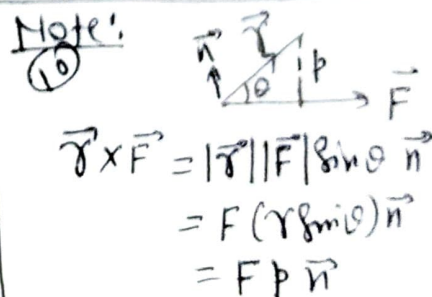 Note:
10
n⃗ r⃗ θ p F⃗
r⃗ × F⃗ = |r⃗||F⃗| sin θ n⃗
= F (r sin θ) n⃗
= F p n⃗